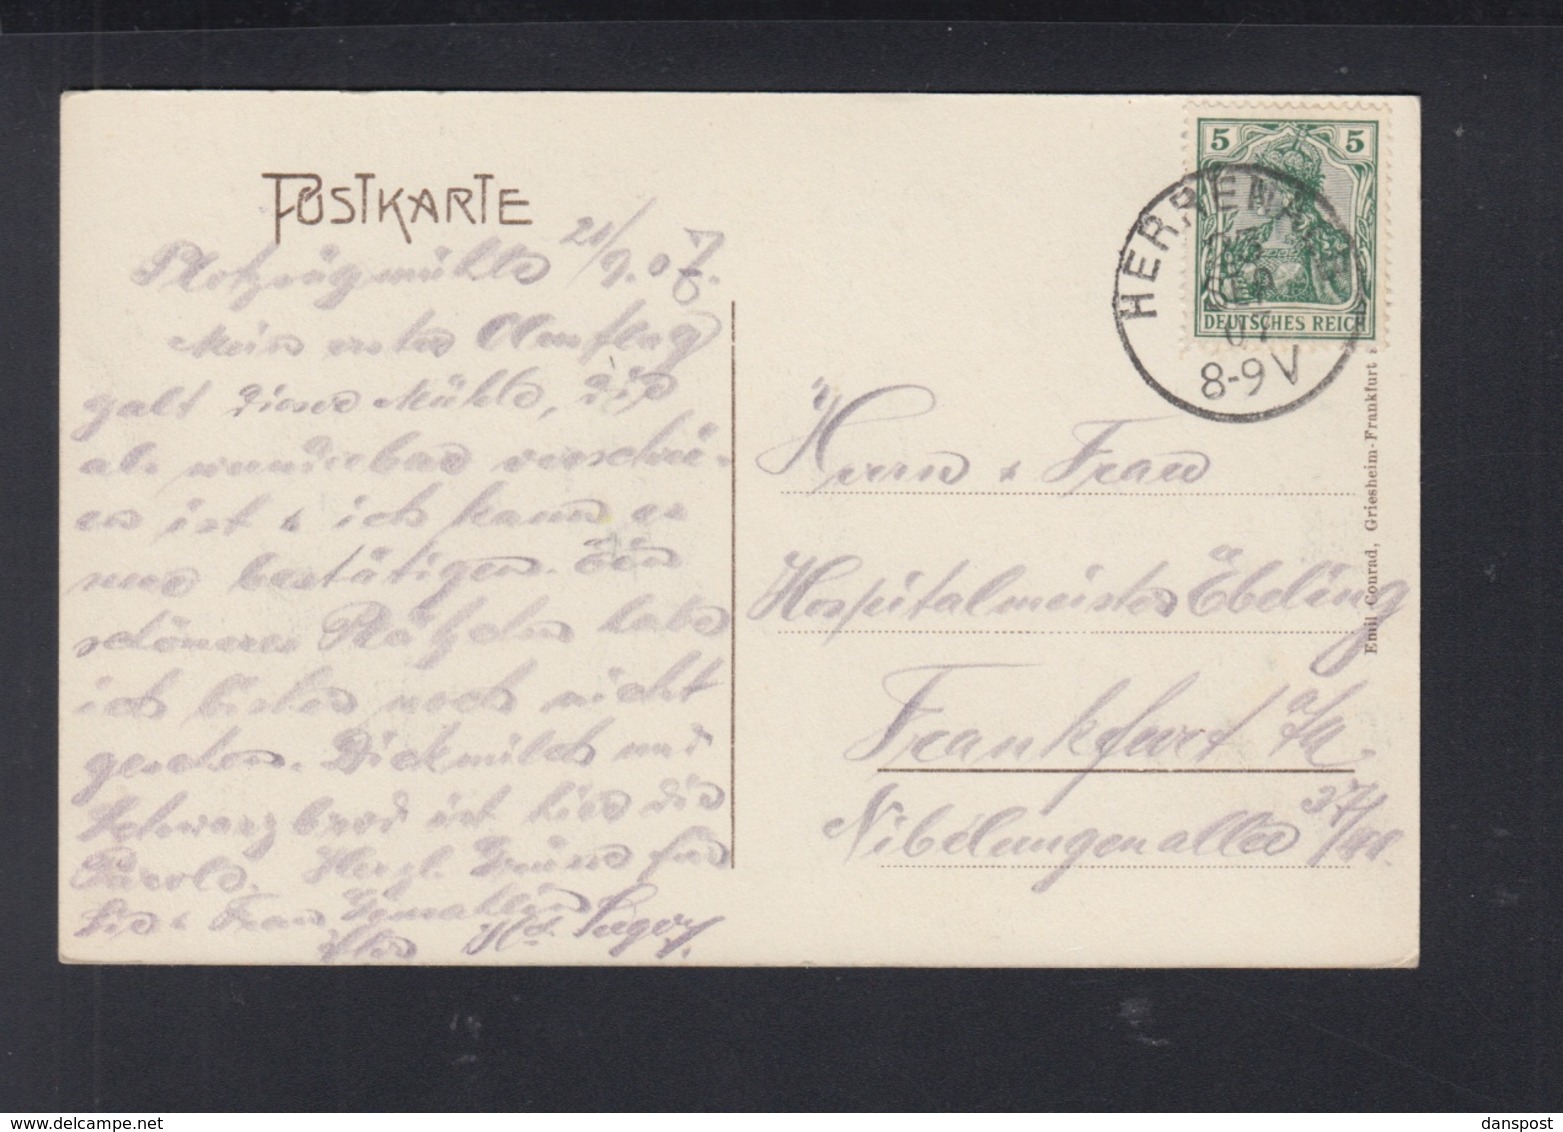 POSTKARTE
Plotzsägmühle 21/9.07.
Mein erster Ausflug
galt dieser Mühle, die
als wunderbar verschrie-
en ist & ich kann es
nur bestätigen. Ein
schöneres Plätzchen habe
ich bisher noch nicht
gesehen. Dickmilch und
Schwarzbrod ist hier die
Parole. Herzl. Grüße für
Sie & Frau Gemahlin
Ihr
5 5
DEUTSCHES REICH
HERRENALB
07
8-9V
Herrn & Frau
Hospitalmeister Ebeling
Frankfurt a/M.
Nibelungenallee 37/41.
Emil Conrad, Griesheim-Frankfurt a
danspost